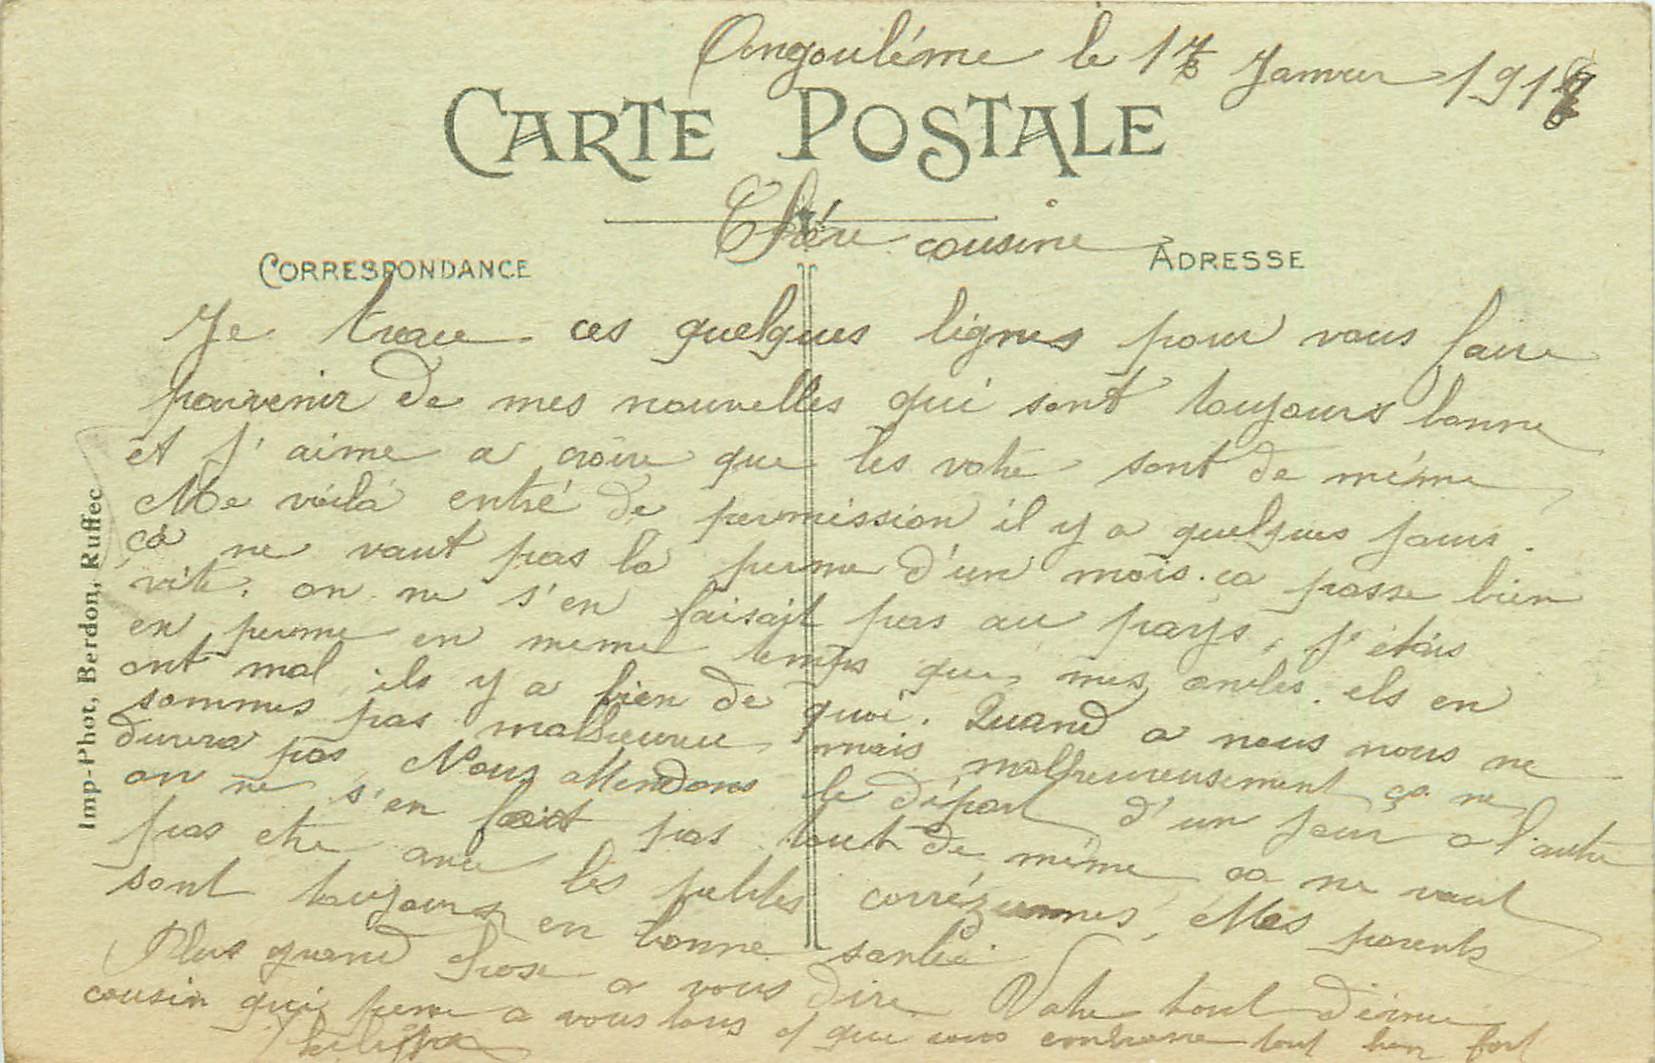 Angoulême le 17 Janvier 1917
CARTE POSTALE
Chère cousine
CORRESPONDANCE
ADRESSE
Je trace ces quelques lignes pour vous faire
parvenir de mes nouvelles qui sont toujours bonne
et j'aime a croire que les votre sont de même
Me voilà entré de permission il y a quelques jours.
ça ne vaut pas la perme d'un mois. ça passe bien
vite. on ne s'en faisait pas au pays, j'étais
en perme en meme temps que mes oncles. els en
ont mal, ils y a bien de quoi. Quand a nous nous ne
sommes pas malheureu mais malheureusement ça ne
durera pas Nous attendons le départ d'un jour a l'autre
on ne s'en fait pas tout de même ça ne vaut
pas etre avec les petites corréziennes, Mes parents
sont toujours en bonne santée.
Plus grand chose a vous dire Votre tout dévoué
cousin qui pense a vous tous et que vous embrasse tout bien fort
Philippe
Imp-Phot, Berdon, Ruffec